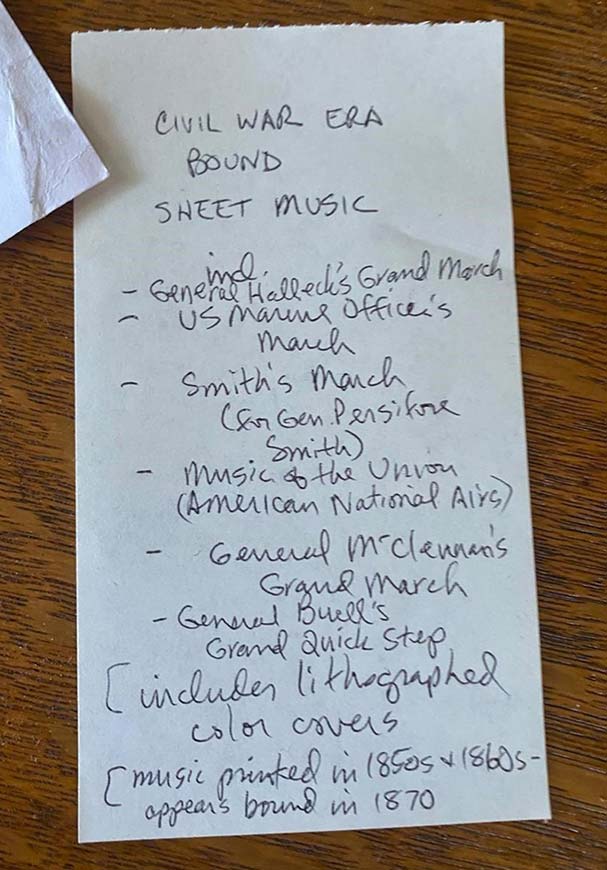 CIVIL WAR ERA
BOUND
SHEET MUSIC
incl.
- General Halleck's Grand March
- US Marine Officer's
March
- Smith's March
(for Gen. Persifore
Smith)
- Music of the Union
(American National Airs)
- General McClennan's
Grand March
- General Buell's
Grand Quick Step
[includes lithographed
color covers
[music printed in 1850s + 1860s-
appears bound in 1870